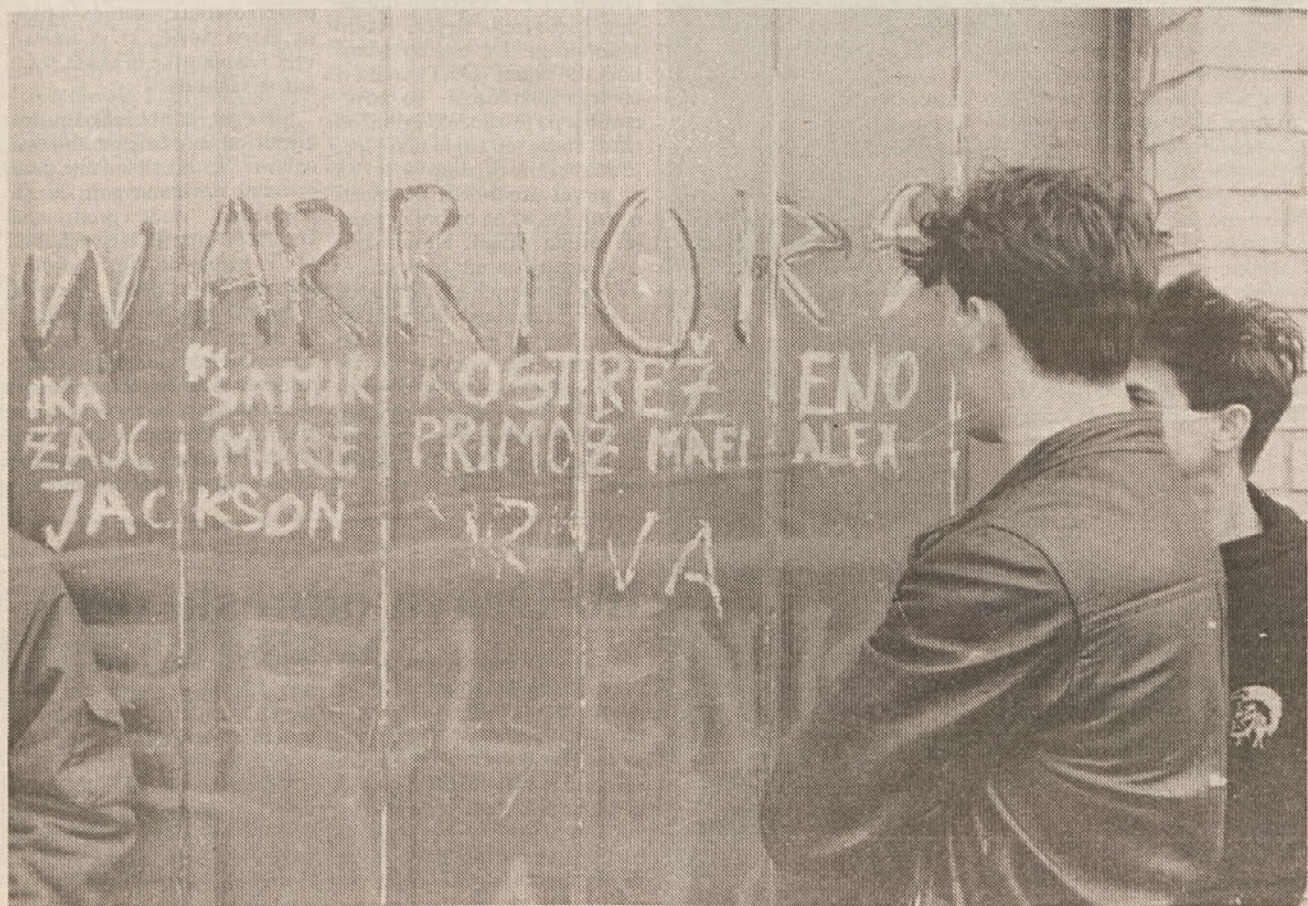 WARRIORS
IKA SAMIR KOSTREŽ ENO
ZAJC MARE PRIMOŽ MAFI ALEX
JACKSON